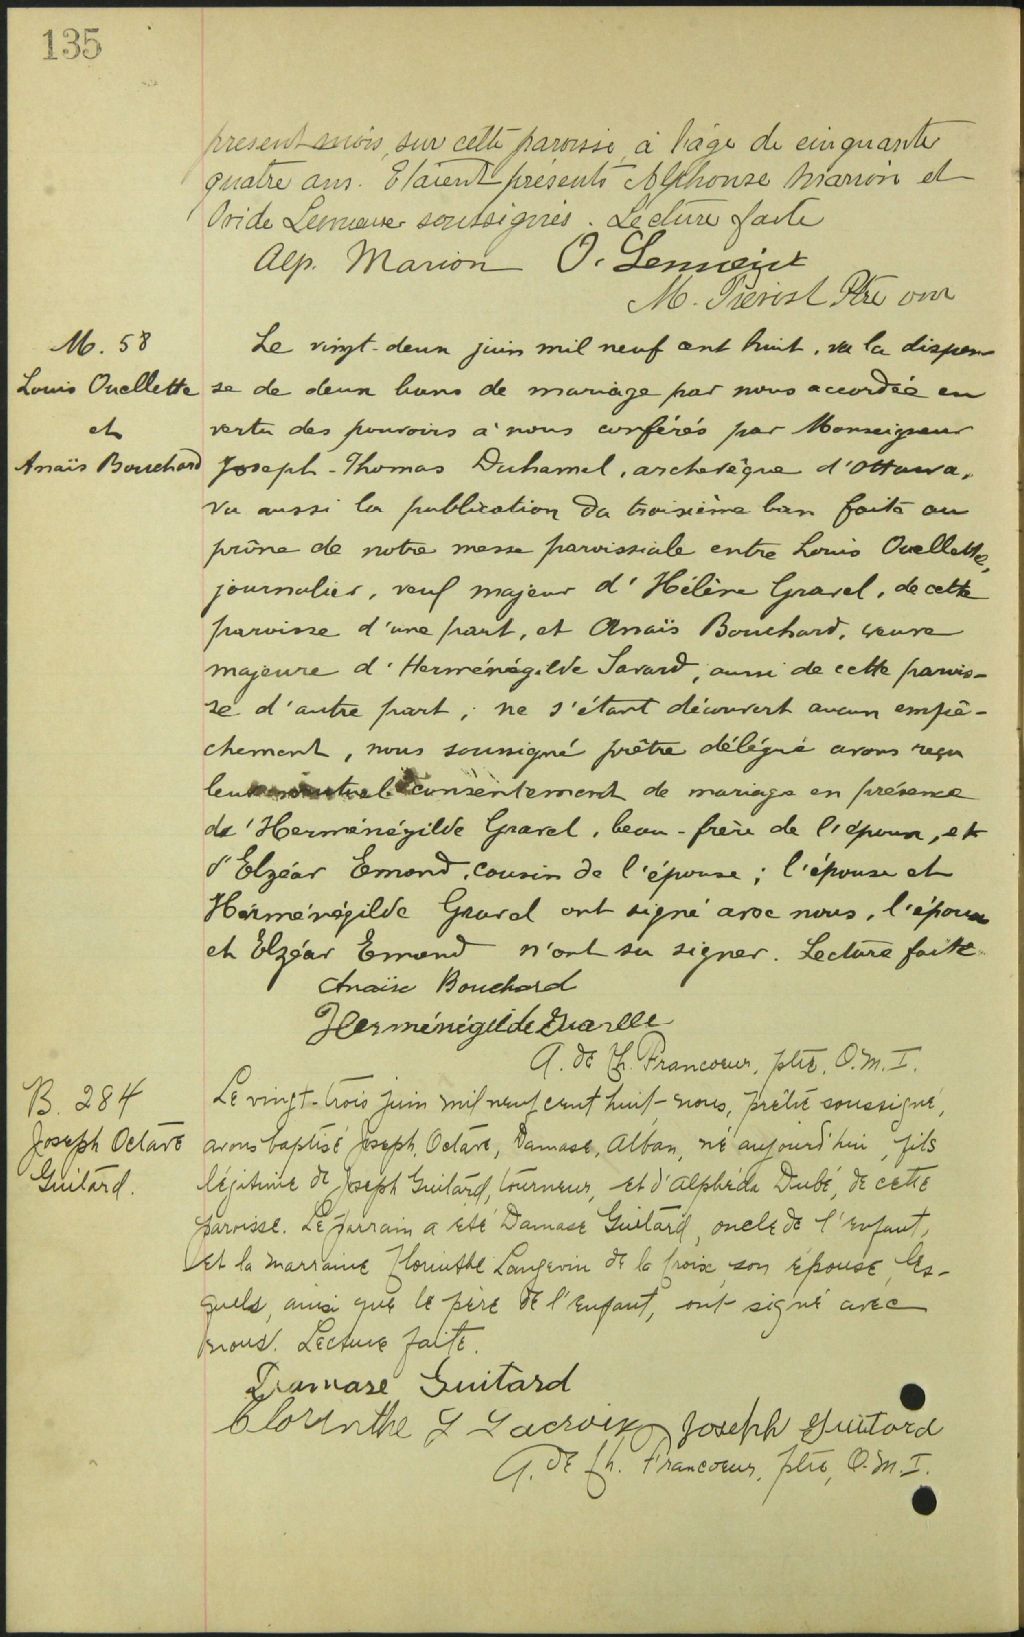 135
present mois, sur cette paroisse, à l'âge de cinquante
quatre ans. Etaient présents Alphonse Marion et
Ovide Lemieux soussignés. Lecture faite
Alp. Marion O. Lemieux
M. Prévost Ptre omi
M. 58
Louis Ouellette
et
Anaïs Bouchard
Le vingt-deux juin mil neuf cent huit, vu la dispen-
se de deux bans de mariage par nous accordée en
vertu des pouvoirs à nous conférés par Monseigneur
Joseph-Thomas Duhamel, archevêque d'Ottawa,
vu aussi la publication du troisième ban faite au
prône de notre messe paroissiale entre Louis Ouellette,
journalier, veuf majeur d'Hélène Gravel, de cette
paroisse d'une part, et Anaïs Bouchard, veuve
majeure d'Herménégilde Savard, aussi de cette parois-
se d'autre part; ne s'étant découvert aucun empê-
chement, nous soussigné prêtre délégué avons reçu
leur mutuel consentement de mariage en présence
de'Herménégilde Gravel, beau-frère de l'époux, et
d'Elzéar Emond, cousin de l'épouse; l'épouse et
Herménégilde Gravel ont signé avec nous, l'époux
et Elzéar Emond n'ont su signer. Lecture faite
Anaïse Bouchard
Herménégilde
A. de Ch. Francoeur, ptre, O.M.I.
B. 284
Joseph Octave
Guitard.
Le vingt-trois juin mil neuf cent huit nous, prêtre soussigné,
avons baptisé Joseph, Octave, Damase, Alban, né aujourd'hui, fils
légitime de Joseph Guitard, tourneur, et d'Alphéda Dubé, de cette
paroisse. Le parrain a été Damase Guitard, oncle de l'enfant,
et la marraine Florinthe Langevin de la Croix son épouse, les-
quels, ainsi que le père de l'enfant, ont signé avec
nous. Lecture faite.
Damase Guitard
Clorinthe L Lacroix Joseph Guitard
A. de Ch. Francoeur, ptre, O.M.I.